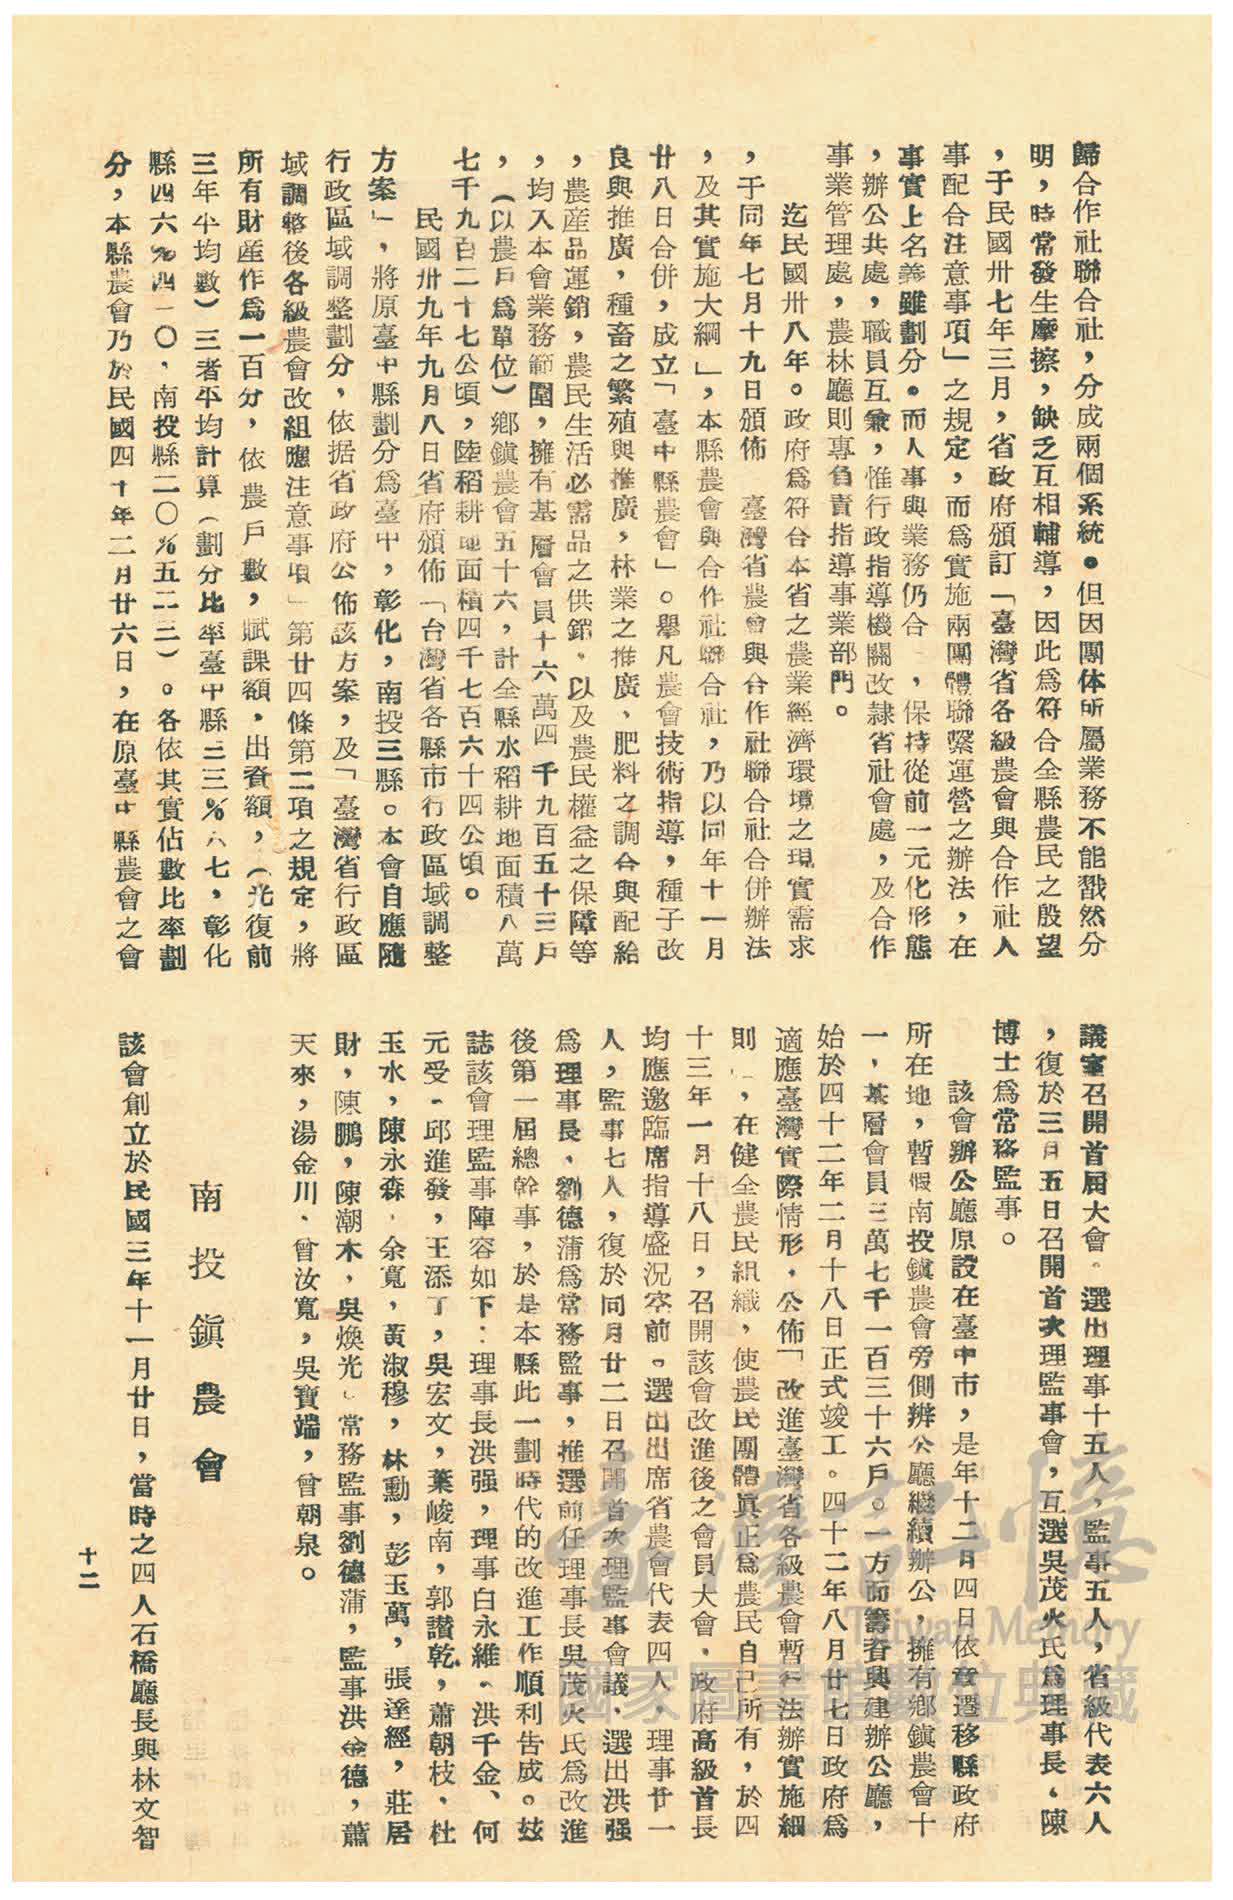 歸合作社聯合社，分成兩個系統。但因團体所屬業務不能戳然分
明，時常發生摩擦，缺乏互相輔導，因此爲符合全縣農民之殷望
，于民國卅七年三月，省政府頒訂「臺灣省各級農會與合作社人
事配合注意事項」之規定，而爲實施兩團體聯繫運營之辦法，在
事實上名義雖劃分。而人事與業務仍合一，保持從前一元化形態
，辦公共處，職員互兼，惟行政指導機關改隷省社會處，及合作
事業管理處，農林廳則專負責指導事業部門。
迄民國卅八年。政府爲符合本省之農業經濟環境之現實需求
，于同年七月十九日頒佈　臺灣省農會與合作社聯合社合併辦法
，及其實施大綱」，本縣農會與合作社聯合社，乃以同年十一月
廿八日合併，成立「臺中縣農會」。舉凡農會技術指導，種子改
良與推廣，種畜之繁殖與推廣，林業之推廣、肥料之調合與配給
，農産品運銷，農民生活必需品之供銷，以及農民權益之保障等
，均入本會業務範圍，擁有基層會員十六萬四千九百五十三戶
，（以農戶爲單位）鄉鎭農會五十六，計全縣水稻耕地面積八萬
七千九百二十七公頃，陸稻耕地面積四千七百六十四公頃。
民國卅九年九月八日省府頒佈「台灣省各縣市行政區域調整
方案」，將原臺中縣劃分爲臺中，彰化，南投三縣。本會自應隨
行政區域調整劃分，依据省政府公佈該方案，及「臺灣省行政區
域調整後各級農會改組應注意事項」第廿四條第二項之規定，將
所有財産作爲一百分，依農戶數，賦課額，出資額，（光復前
三年平均數）三者平均計算（劃分比率臺中縣三三%六七，彰化
縣四六%四一〇、南投縣二〇%五二三）。各依其實佔數比率劃
分，本縣農會乃於民國四十年二月廿六日，在原臺中縣農會之會
議室召開首屆大會。選出理事十五人，監事五人，省級代表六人
，復於三月五日召開首次理監事會，互選吳茂火氏爲理事長、陳
博士爲常務監事。
該會辦公廳原設在臺中市，是年十二月四日依章遷移縣政府
所在地，暫假南投鎭農會旁側辦公廳繼續辦公，擁有鄉鎭農會十
一，基層會員三萬七千一百三十六戶。一方面籌資興建辦公廳，
始於四十二年二月十八日正式竣工。四十二年八月廿七日政府爲
適應臺灣實際情形，公佈「改進臺灣省各級農會暫行法辦實施細
則」，在健全農民組織，使農民團體眞正爲農民自己所有，於四
十三年一月十八日，召開該會改進後之會員大會，政府高級首長
均應邀臨席指導盛況空前。選出出席省農會代表四人，理事廿一
人，監事七人，復於同月廿二日召開首次理監事會議，選出洪强
爲理事長、劉德蒲爲常務監事，推選前任理事長吳茂火氏爲改進
後第一屆總幹事，於是本縣此一劃時代的改進工作順利告成。玆
誌該會理監事陣容如下：理事長洪强，理事白永維、洪千金、何
元受、邱進發，王添丁，吳宏文，葉峻南，郭讃乾，蕭朝枝、杜
玉水，陳永森，余寬，黃淑穆，林勳，彭玉萬，張逹經，莊居
財，陳鵬，陳潮木，吳煥光，常務監事劉德蒲，監事洪金德，蕭
天來，湯金川、曾汝寬，吳寶端，曾朝泉。
南投鎭農會
該會創立於民國三年十一月廿日，當時之四人石橋廳長與林文智
十二
臺灣記憶
Taiwan Memory
國家圖書館數位典藏